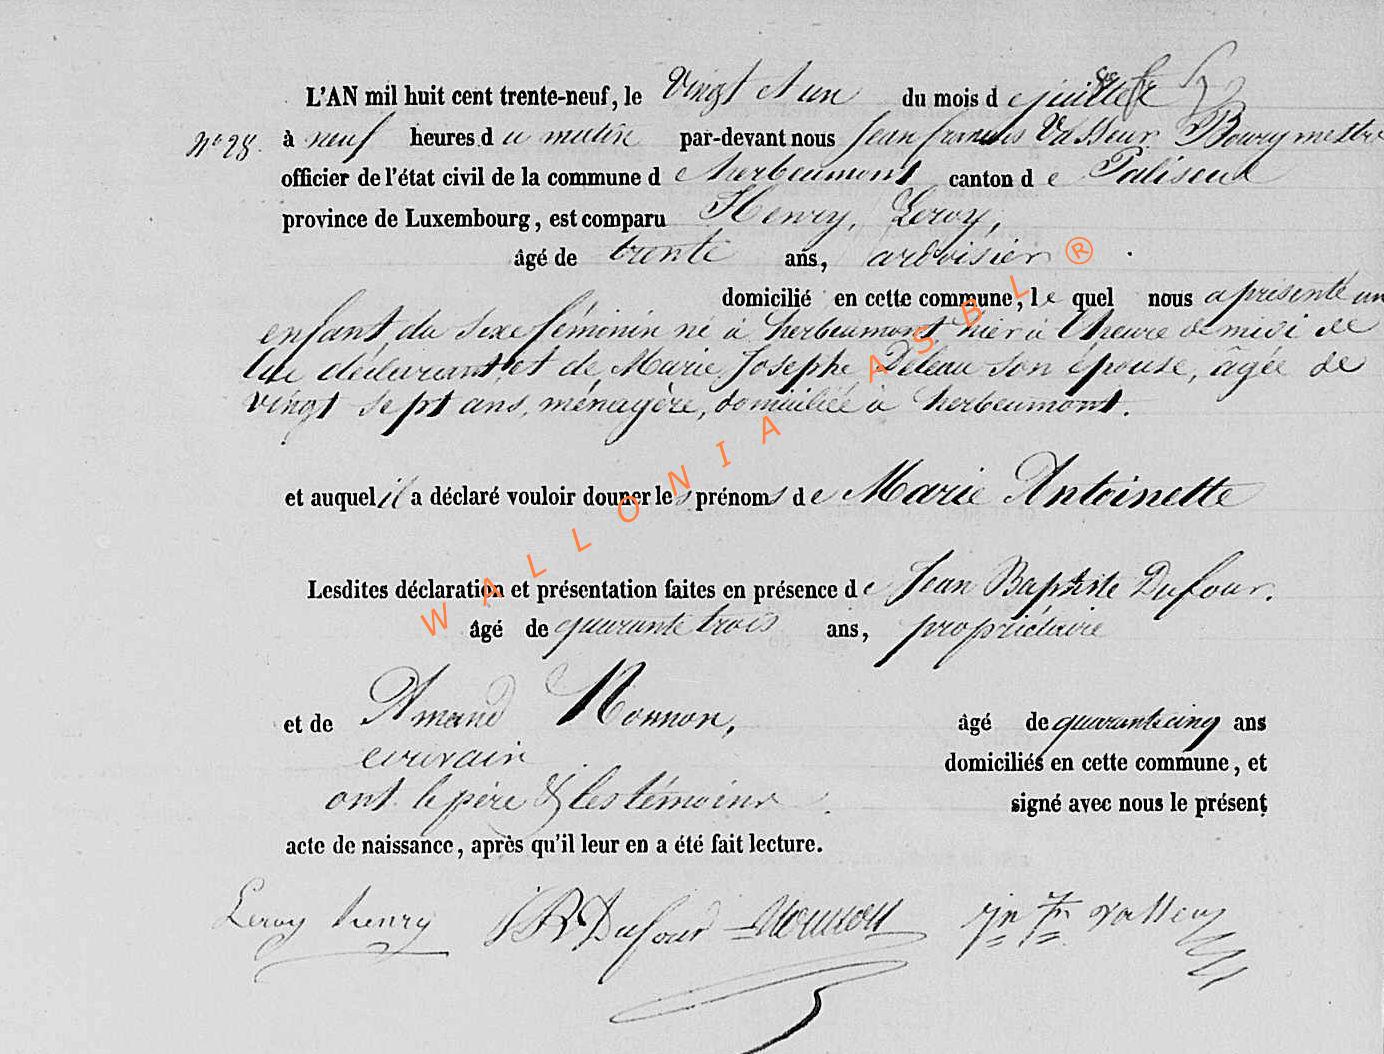 L'AN mil huit cent trente-neuf, le vingt et un du mois de juillet
N° 28. à neuf heures du matin par-devant nous Jean françois Vasseur Bourgmestre
officier de l'état civil de la commune de herbeumont canton de Paliseul
province de Luxembourg, est comparu Henry, Leroy,
âgé de trente ans, ardoisier
domicilié en cette commune, le quel nous a présenté un
enfant, du sexe féminin né à herbeumont hier à l'heure de midi de
lui déclarant, et de Marie Josephe Deleau son épouse, âgée de
vingt sept ans, ménagère, domiciliée à herbeumont.
et auquel il a déclaré vouloir donner les prénoms de Marie Antoinette
Lesdites déclaration et présentation faites en présence de Jean Baptiste Dufour.
âgé de quarante trois ans, propriétaire
et de Amand Monnon, âgé de quarante cinq ans
écrivain domiciliés en cette commune, et
ont le père & les témoins signé avec nous le présent
acte de naissance, après qu'il leur en a été fait lecture.
Leroy henry JB Dufour Monnon jn fs vasseur
WALLONIA ASBL ®